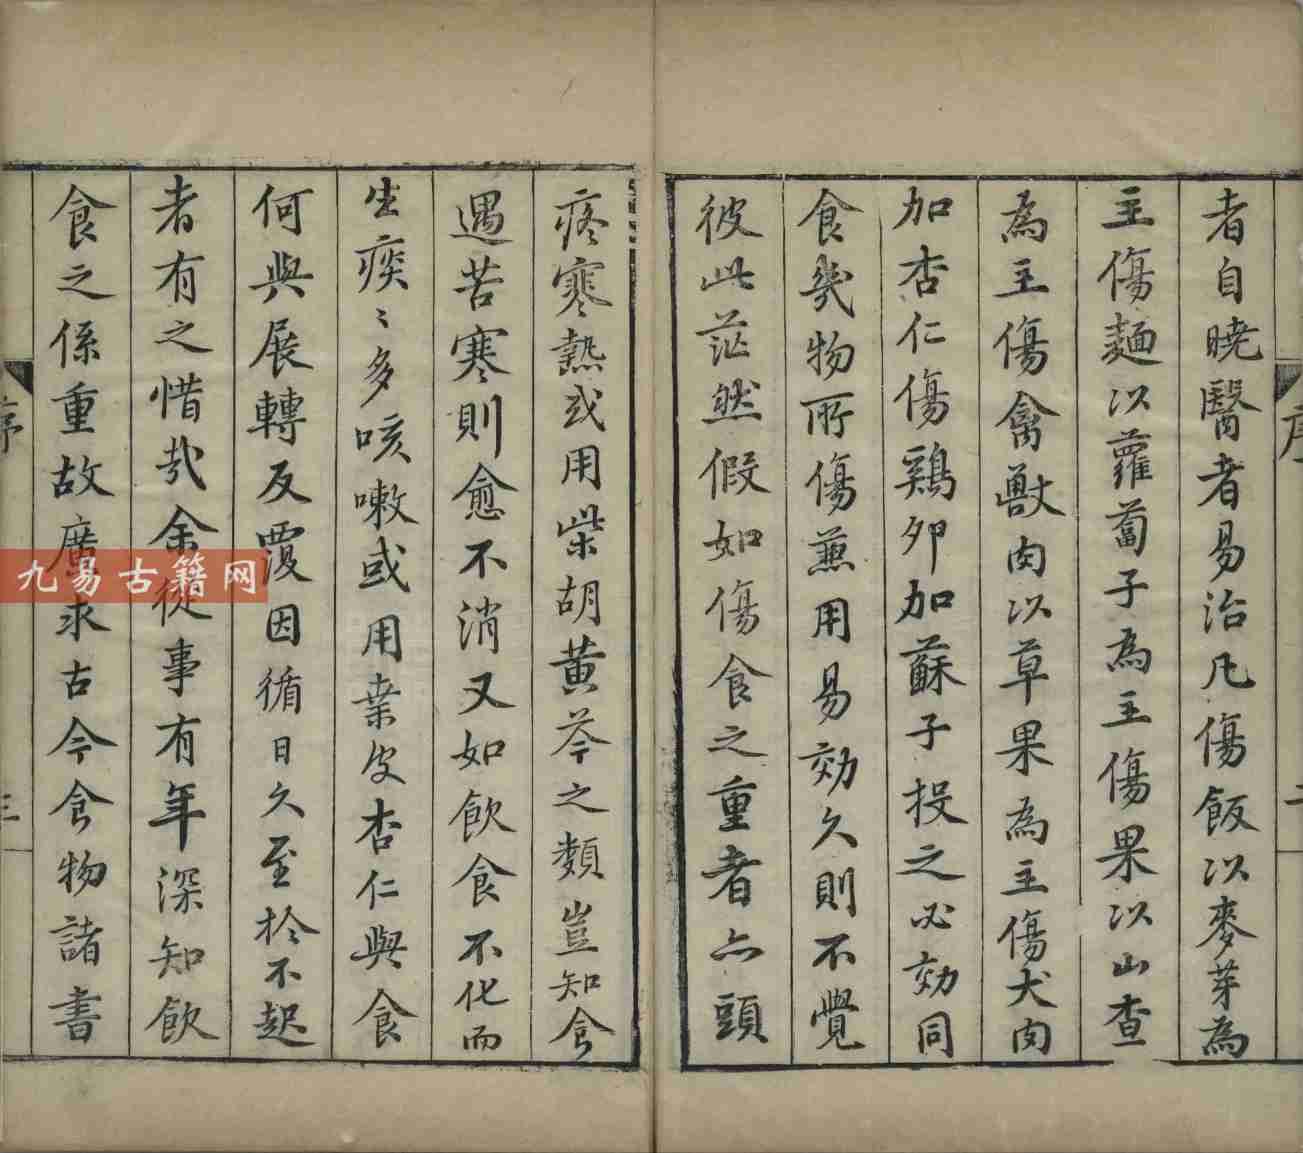 者自曉醫者易治凡傷飯以麥芽為
主傷麵以蘿蔔子為主傷果以山查
為主傷禽獸肉以草果為主傷犬肉
加杏仁傷鷄卵加蘇子投之必効同
食幾物所傷兼用易効久則不覺
彼此茫然假如傷食之重者亦頭
疼寒熱或用柴胡黄芩之類豈知食
遇苦寒則愈不消又如飲食不化而
生痰〻多咳嗽或用桒皮杏仁與食
何與展轉反覆因循日久至於不起
者有之惜哉余從事有年深知飲
食之係重故廣求古今食物諸書
序
二
序
三
九易古籍网